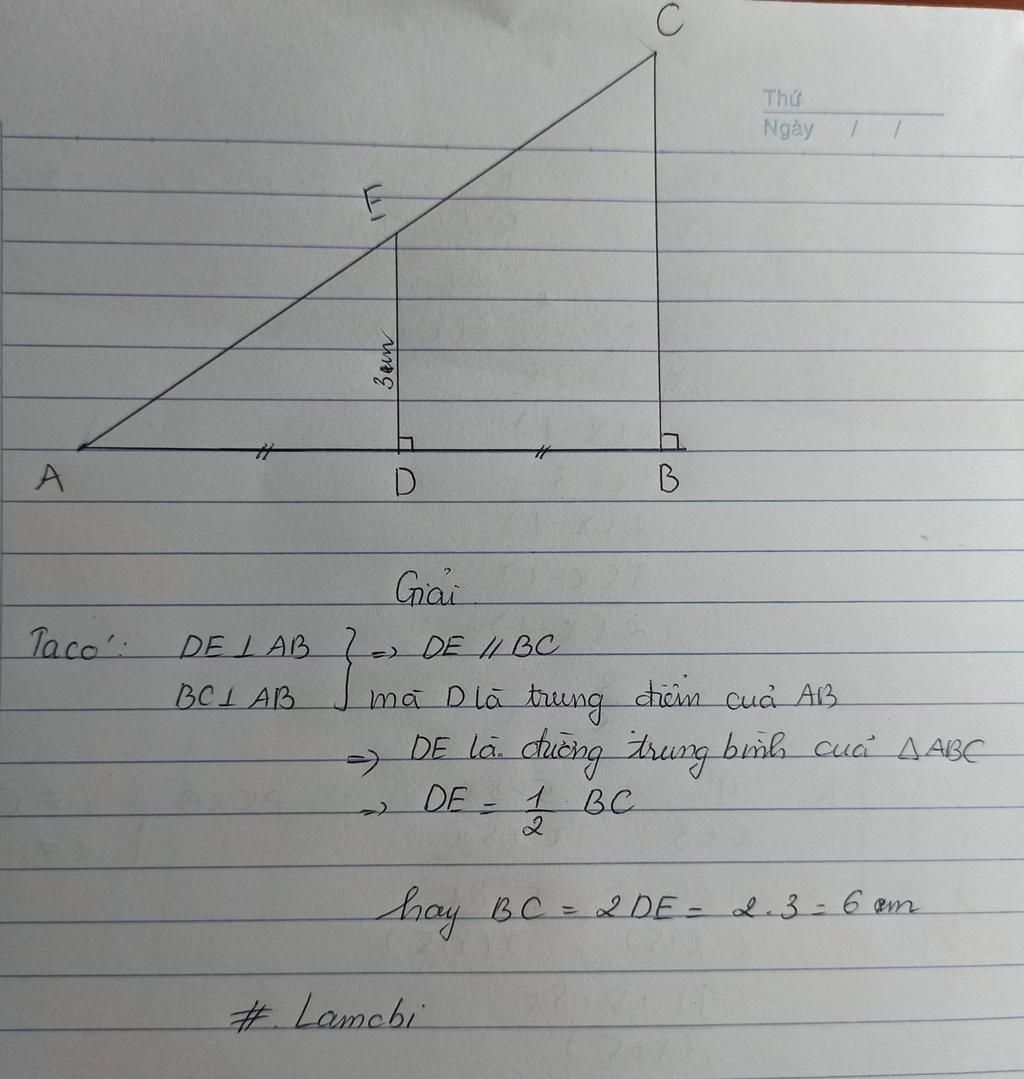 C
Thứ
Ngày / /
E
3cm
A D B
Giải.
Ta có: DE ⊥ AB } => DE // BC
BC ⊥ AB mà D là trung điểm cuả AB
=> DE là đường trung bình cuả △ABC
=> DE = 1/2 BC
hay BC = 2DE = 2.3 = 6 cm
#. Lamchi